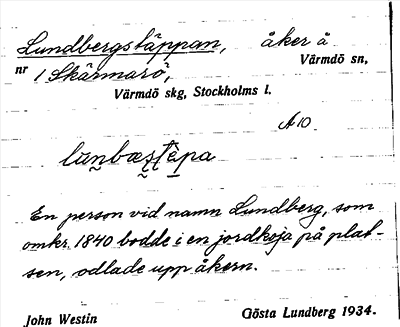 Lundbergstäppan, åker å
Värmdö sn,
nr 1 Skärmarö,
Värmdö skg, Stockholms l.
A 10
En person vid namn Lundberg, som
omkr. 1840 bodde i en jordkoja på plat-
sen, odlade upp åkern.
John Westin
Gösta Lundberg 1934.